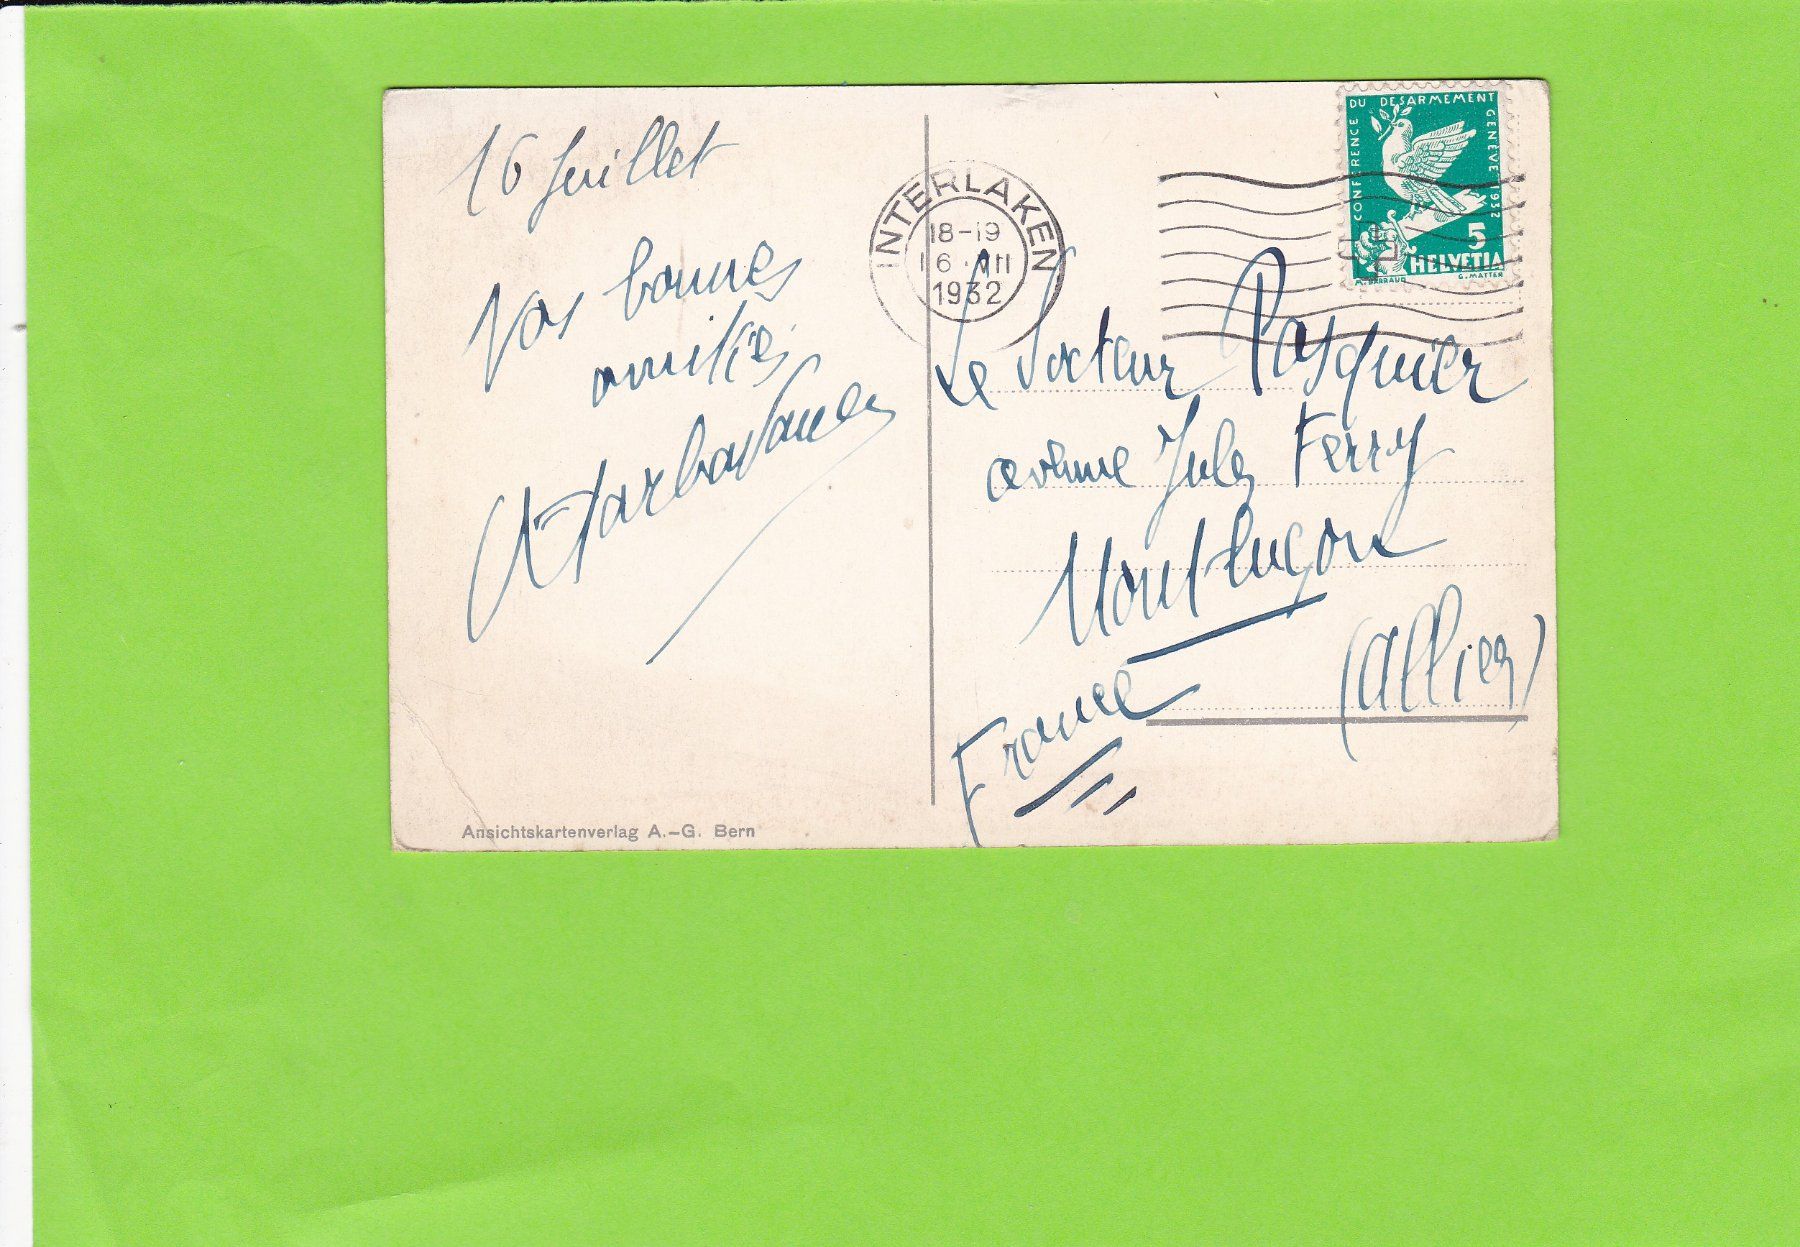 16 juillet
Nos bonnes
amitiés
Ansichtskartenverlag A.-G. Bern
INTERLAKEN
18-19
16.VII
1932
CONFERENCE DU DESARMEMENT GENEVE 1932
5
HELVETIA
M. BARRAUD G. MATTER
Le Docteur Pasquier
avenue Jules Ferry
Montluçon
(Allier)
France